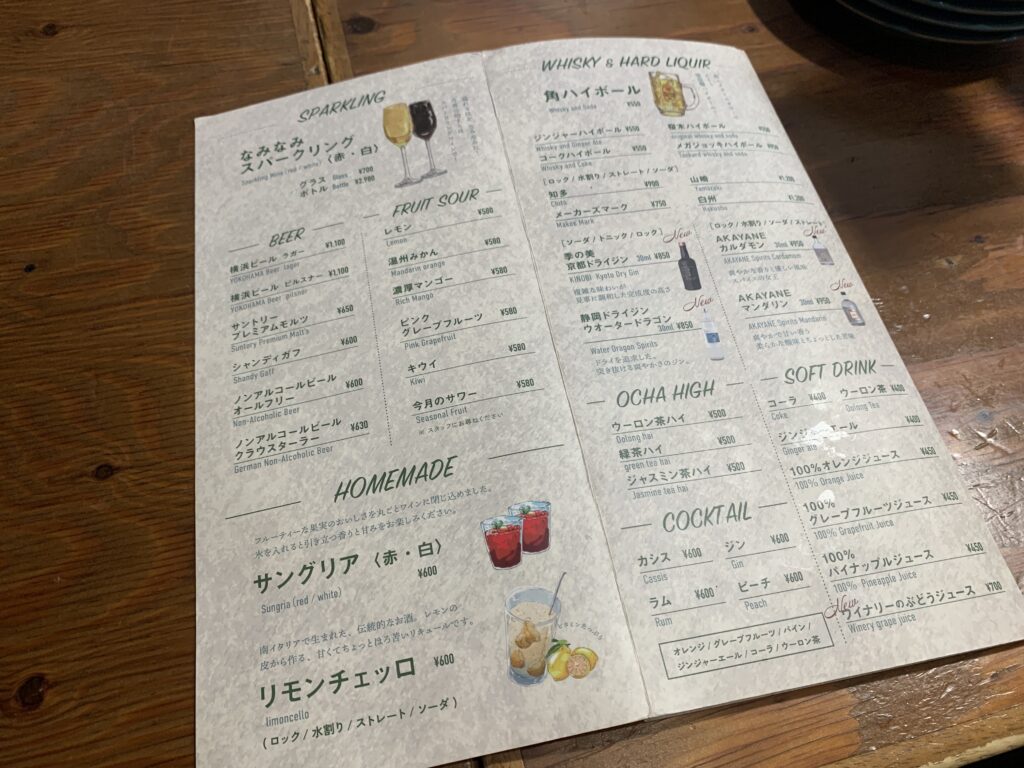 SPARKLING
なみなみ
スパークリング
〈赤・白〉
Sparkling Wine (red / white)
グラス Glass ¥700
ボトル Bottle ¥2,980
BEER
横浜ビール ラガー ¥1,100
YOKOHAMA Beer lager
横浜ビール ピルスナー ¥1,100
YOKOHAMA Beer pilsner
サントリー
プレミアムモルツ ¥650
Suntory Premium Malt's
シャンディガフ ¥600
Shandy Gaff
ノンアルコールビール
オールフリー ¥600
Non-Alcoholic Beer
ノンアルコールビール
クラウスターラー ¥630
German Non-Alcoholic Beer
FRUIT SOUR
レモン ¥500
Lemon
温州みかん ¥580
Mandarin orange
濃厚マンゴー ¥580
Rich Mango
ピンク
グレープフルーツ ¥580
Pink Gragefruit
キウイ ¥580
Kiwi
今月のサワー ¥580
Seasonal Fruit
※ スタッフにお尋ねください
HOMEMADE
フルーティーな果実のおいしさを丸ごとワインに閉じ込めました。
火を入れると引き立つ香りと甘みをお楽しみください。
サングリア〈赤・白〉
¥600
Sungria (red / white)
南イタリアで生まれた、伝統的なお酒。レモンの
皮から作る、甘くてちょっとほろ苦いリキュールです。
リモンチェッロ ¥600
limoncello
(ロック / 水割り / ストレート / ソーダ)
ビタミンたっぷり
WHISKY & HARD LIQUIR
角ハイボール ¥550
Whisky and Soda
ジンジャーハイボール ¥550
Whisky and Ginger Ale
コークハイボール ¥550
Whisky and Coke
樽木ハイボール
original whisky and soda
メガジョッキハイボール
Tankard whisky and soda
[ロック / 水割り / ストレート / ソーダ]
知多 ¥900
Chita
メーカーズマーク ¥750
Maker Mark
山崎 ¥1,200
Yamazaki
白州 ¥1,200
Hakushu
[ソーダ / トニック / ロック]
New
季の美
京都ドライジン 30ml ¥850
KINOBI Kyoto Dry Gin
複雑な味わいが
見事に調和した完成度の高さ
New
静岡ドライジン
ウオータードラゴン
30ml ¥850
Water Dragon Spirits
ドライを追求した。
突き抜ける爽やかさのジン。
[ロック / 水割り / ソーダ / ストレート]
New
AKAYANE
カルダモン 30ml ¥950
AKAYANE Spirits Cardamon
爽やかな香りと優しい風味
スパイスの女王
New
AKAYANE
マンダリン 30ml ¥950
AKAYANE Spirits Mandarin
爽やかで甘い香り
柔らかな酸味とちょっとした苦味
OCHA HIGH
ウーロン茶ハイ ¥500
Oolong hai
緑茶ハイ ¥500
green tea hai
ジャスミン茶ハイ ¥500
Jasmine tea hai
COCKTAIL
カシス ¥600
Cassis
ジン ¥600
Gin
ラム ¥600
Rum
ピーチ ¥600
Peach
オレンジ / グレープフルーツ / パイン /
ジンジャーエール / コーラ / ウーロン茶
SOFT DRINK
コーラ ¥400
Coke
ウーロン茶 ¥400
Oolong Tea
ジンジャーエール ¥400
Ginger ale
100%オレンジジュース ¥450
100% Orange Juice
100%
グレープフルーツジュース ¥450
100% Grapefruit Juice
100%
パイナップルジュース ¥450
100% Pineapple Juice
New
ワイナリーのぶどうジュース ¥700
Winery grape juice